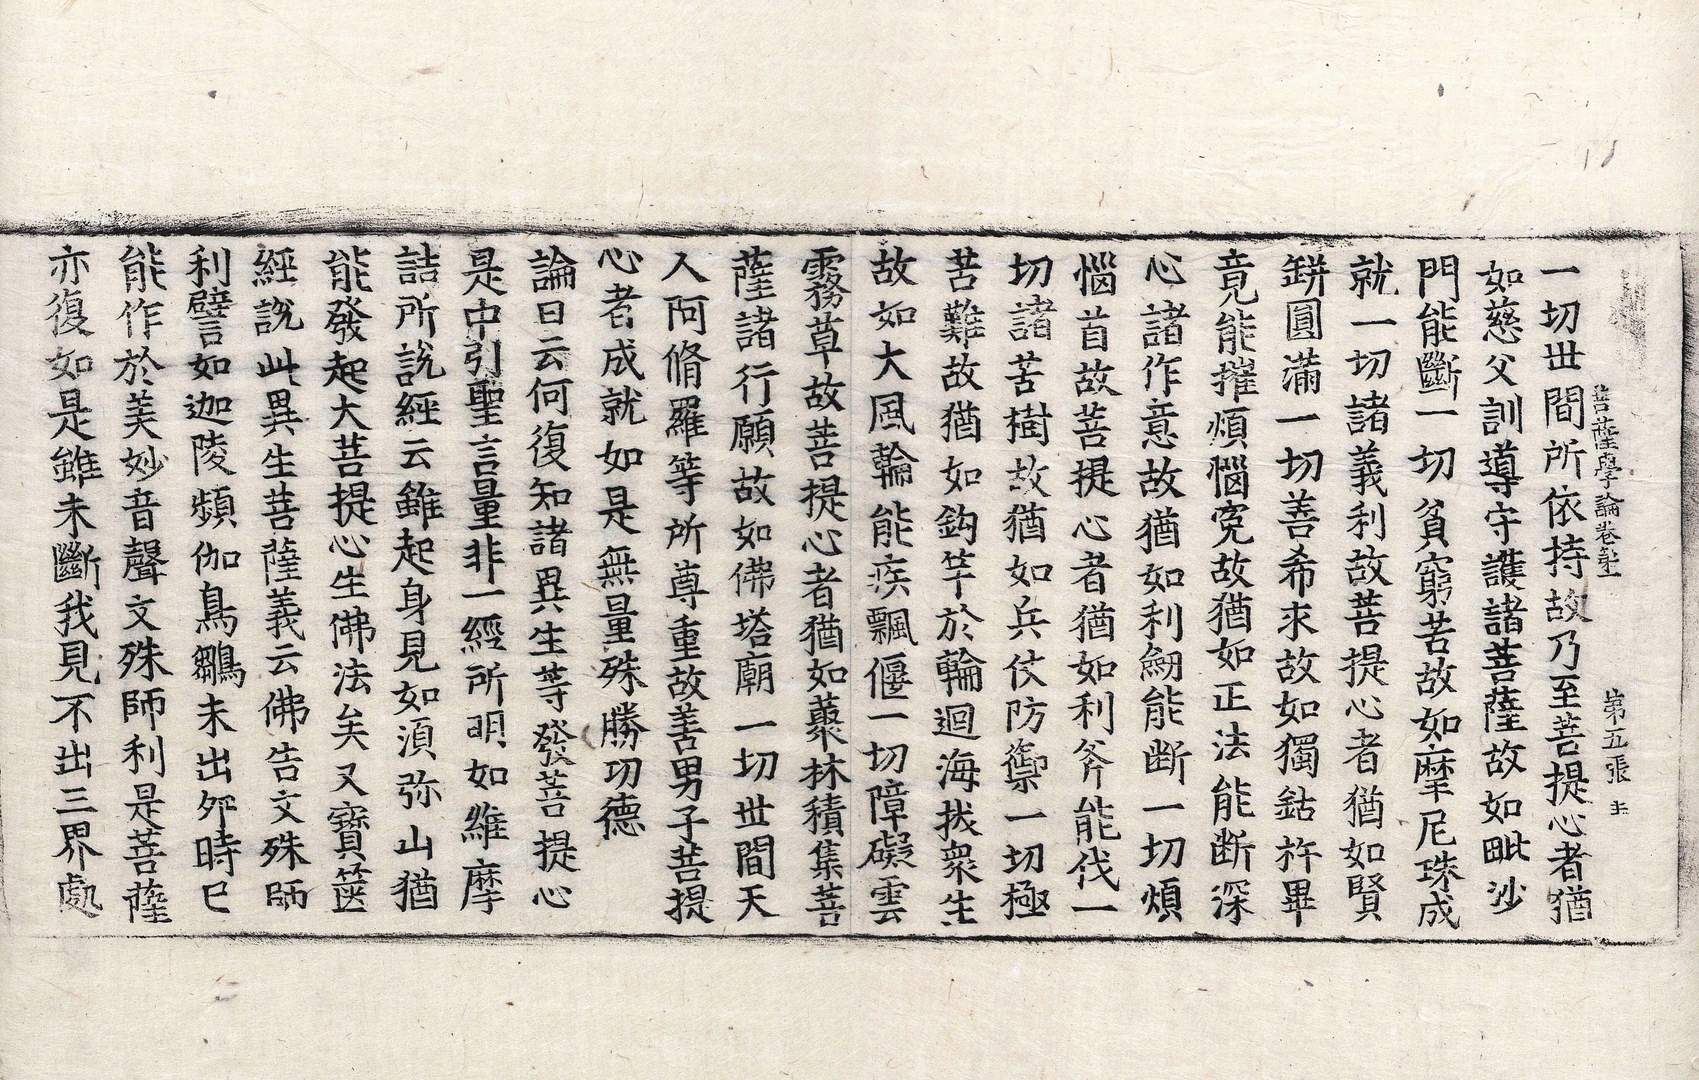 菩薩學論卷第一 第五張 圭
一切世間所依持故乃至菩提心者猶
如慈父訓導守護諸菩薩故如毗沙
門能斷一切貧窮苦故如摩尼珠成
就一切諸義利故菩提心者猶如賢
缾圓滿一切善希求故如獨鈷杵畢
竟能摧煩惱寃故猶如正法能断深
心諸作意故猶如利劒能断一切煩
惱首故菩提心者猶如利斧能伐一
切諸苦樹故猶如兵仗防禦一切極
苦難故猶如鈎竿於輪迴海拔衆生
故如大風輪能疾飄偃一切障礙雲
霧草故菩提心者猶如藂林積集菩
薩諸行願故如佛塔廟一切世間天
人阿脩羅等所尊重故善男子菩提
心者成就如是無量殊勝功德
論曰云何復知諸異生等發菩提心
是中引聖言量非一經所明如維摩
詰所說經云雖起身見如湏弥山猶
能發起大菩提心生佛法矣又寶篋
經說此異生菩薩義云佛告文殊師
利譬如迦陵頻伽鳥鶵未出夘時巳
能作於美妙音聲文殊師利是菩薩
亦復如是雖未斷我見不出三界處